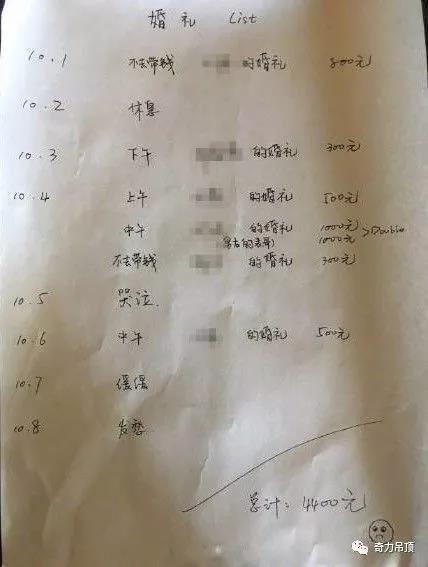 婚礼 List
10.1 不去带钱 的婚礼 800元
10.2 休息
10.3 下午 的婚礼 300元
10.4 上午 的婚礼 500元
中午 的婚礼 1000元
1000元 >Double
不去带钱 的婚礼 300元
10.5 哭泣.
10.6 中午 的婚礼 500元
10.7 缓缓
10.8
总计: 4400元
奇力吊顶